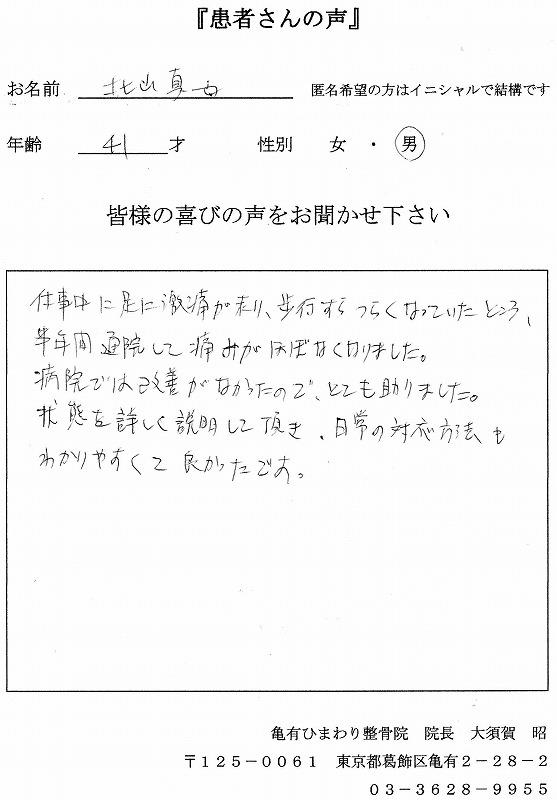 『患者さんの声』
お名前 北山真古 匿名希望の方はイニシャルで結構です
年齢 41 才 性別 女 ・ 男
皆様の喜びの声をお聞かせ下さい
仕事中に足に激痛が走り、歩行すらつらくなっていたところ、
半年間通院して痛みがほぼなくなりました。
病院では改善がなかったので、とても助りました。
状態を詳しく説明して頂き、日常の対応方法も
わかりやすくて良かったです。
亀有ひまわり整骨院 院長 大須賀 昭
〒125-0061 東京都葛飾区亀有2-28-2
03-3628-9955